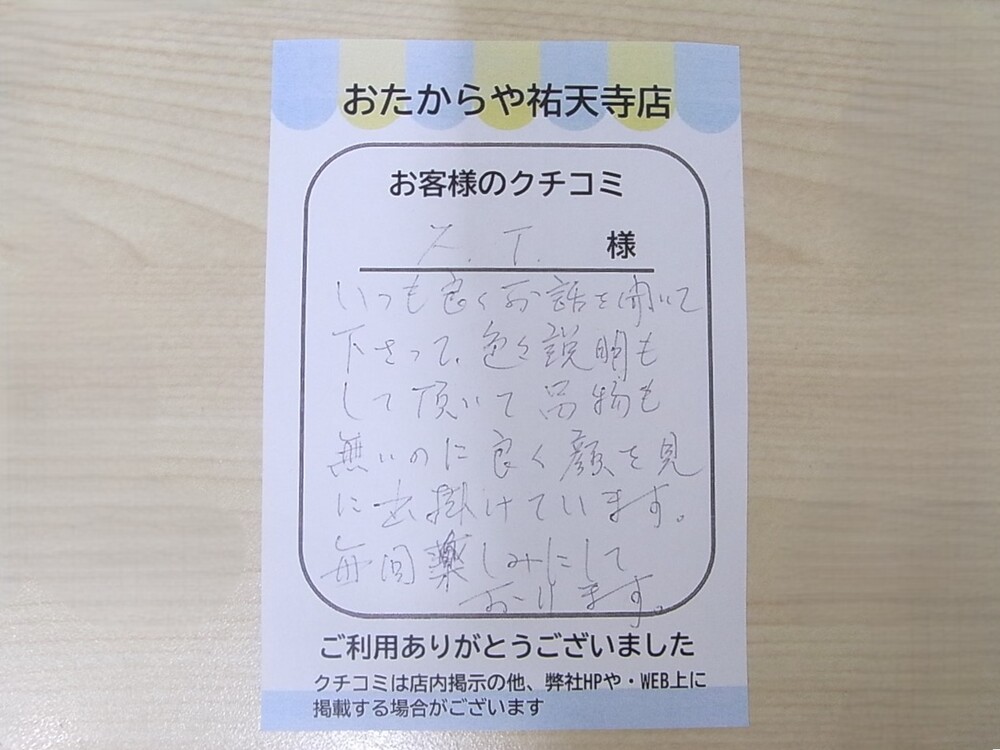 おたからや祐天寺店
お客様のクチコミ
K. T. 様
いつも良くお話を聞いて
下さって、色々説明も
して頂いて品物も
無いのに良く顔を見
に出掛けています。
毎回楽しみにして
おります。
ご利用ありがとうございました
クチコミは店内掲示の他、弊社HPや・WEB上に
掲載する場合がございます